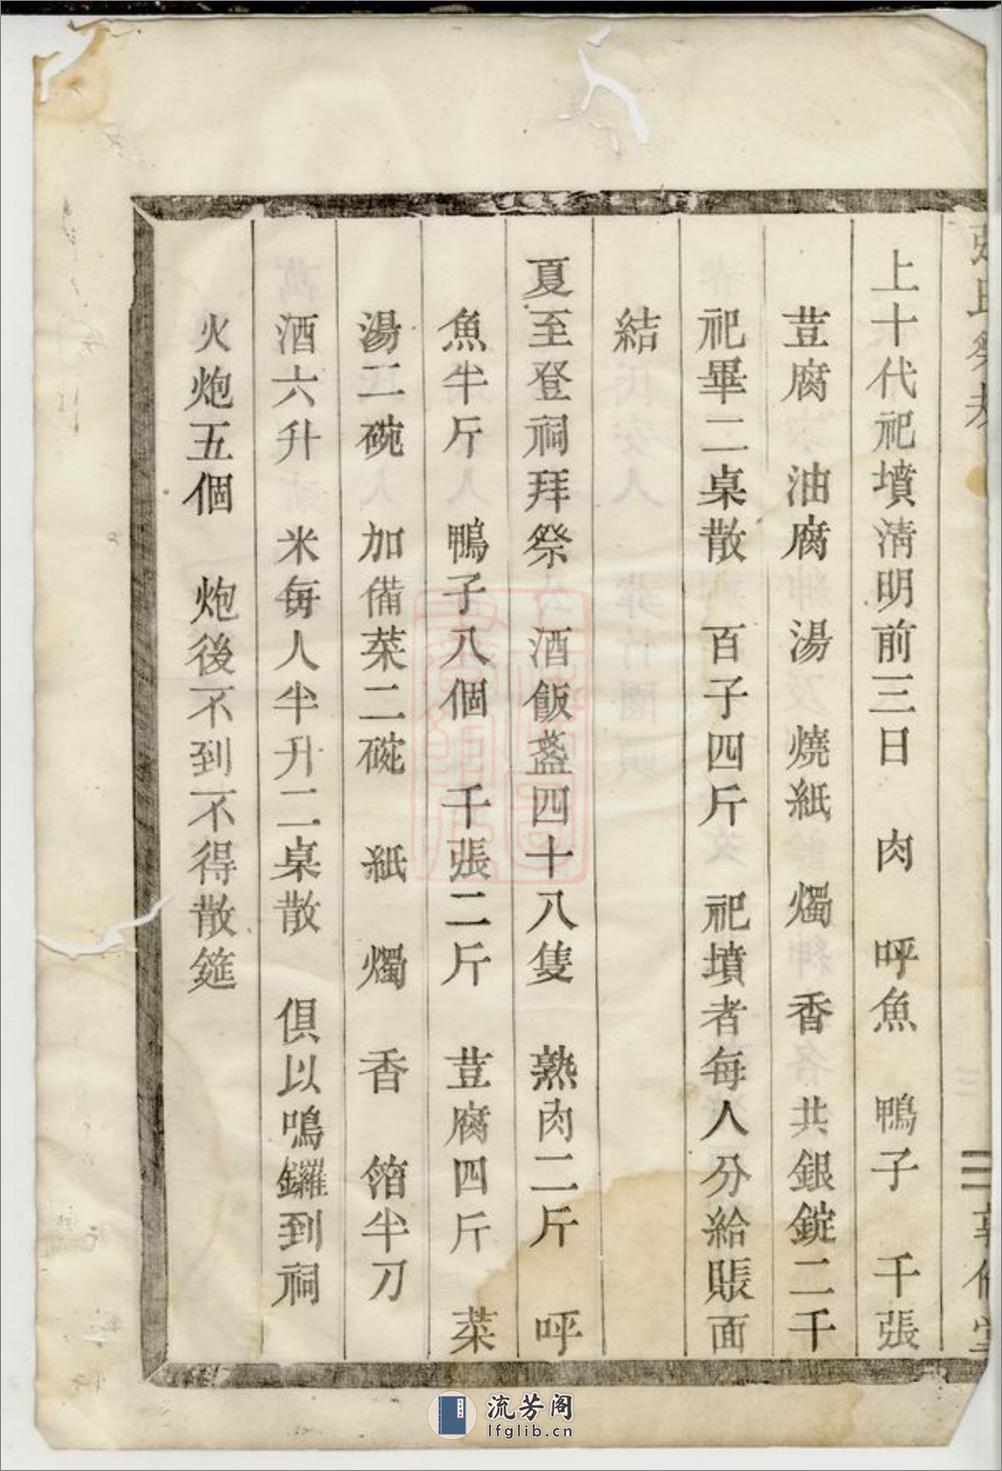 上十代祀墳清明前三日　肉　呼魚　鴨子　千張
荳腐　油腐　湯　燒紙　燭　香　共銀錠二千
祀畢二桌散　百子四斤　祀墳者每人分給賬面
結
夏至登祠拜祭　酒飯盞四十八隻　熟肉二斤　呼
魚半斤　鴨子八個　千張二斤　荳腐四斤　菜
湯二碗　加備菜二碗　紙　燭　香　箔半刀
酒六升　米每人半升二桌散　俱以鳴鑼到祠
火炮五個　炮後不到不得散筵
流芳阁
lfglib.cn